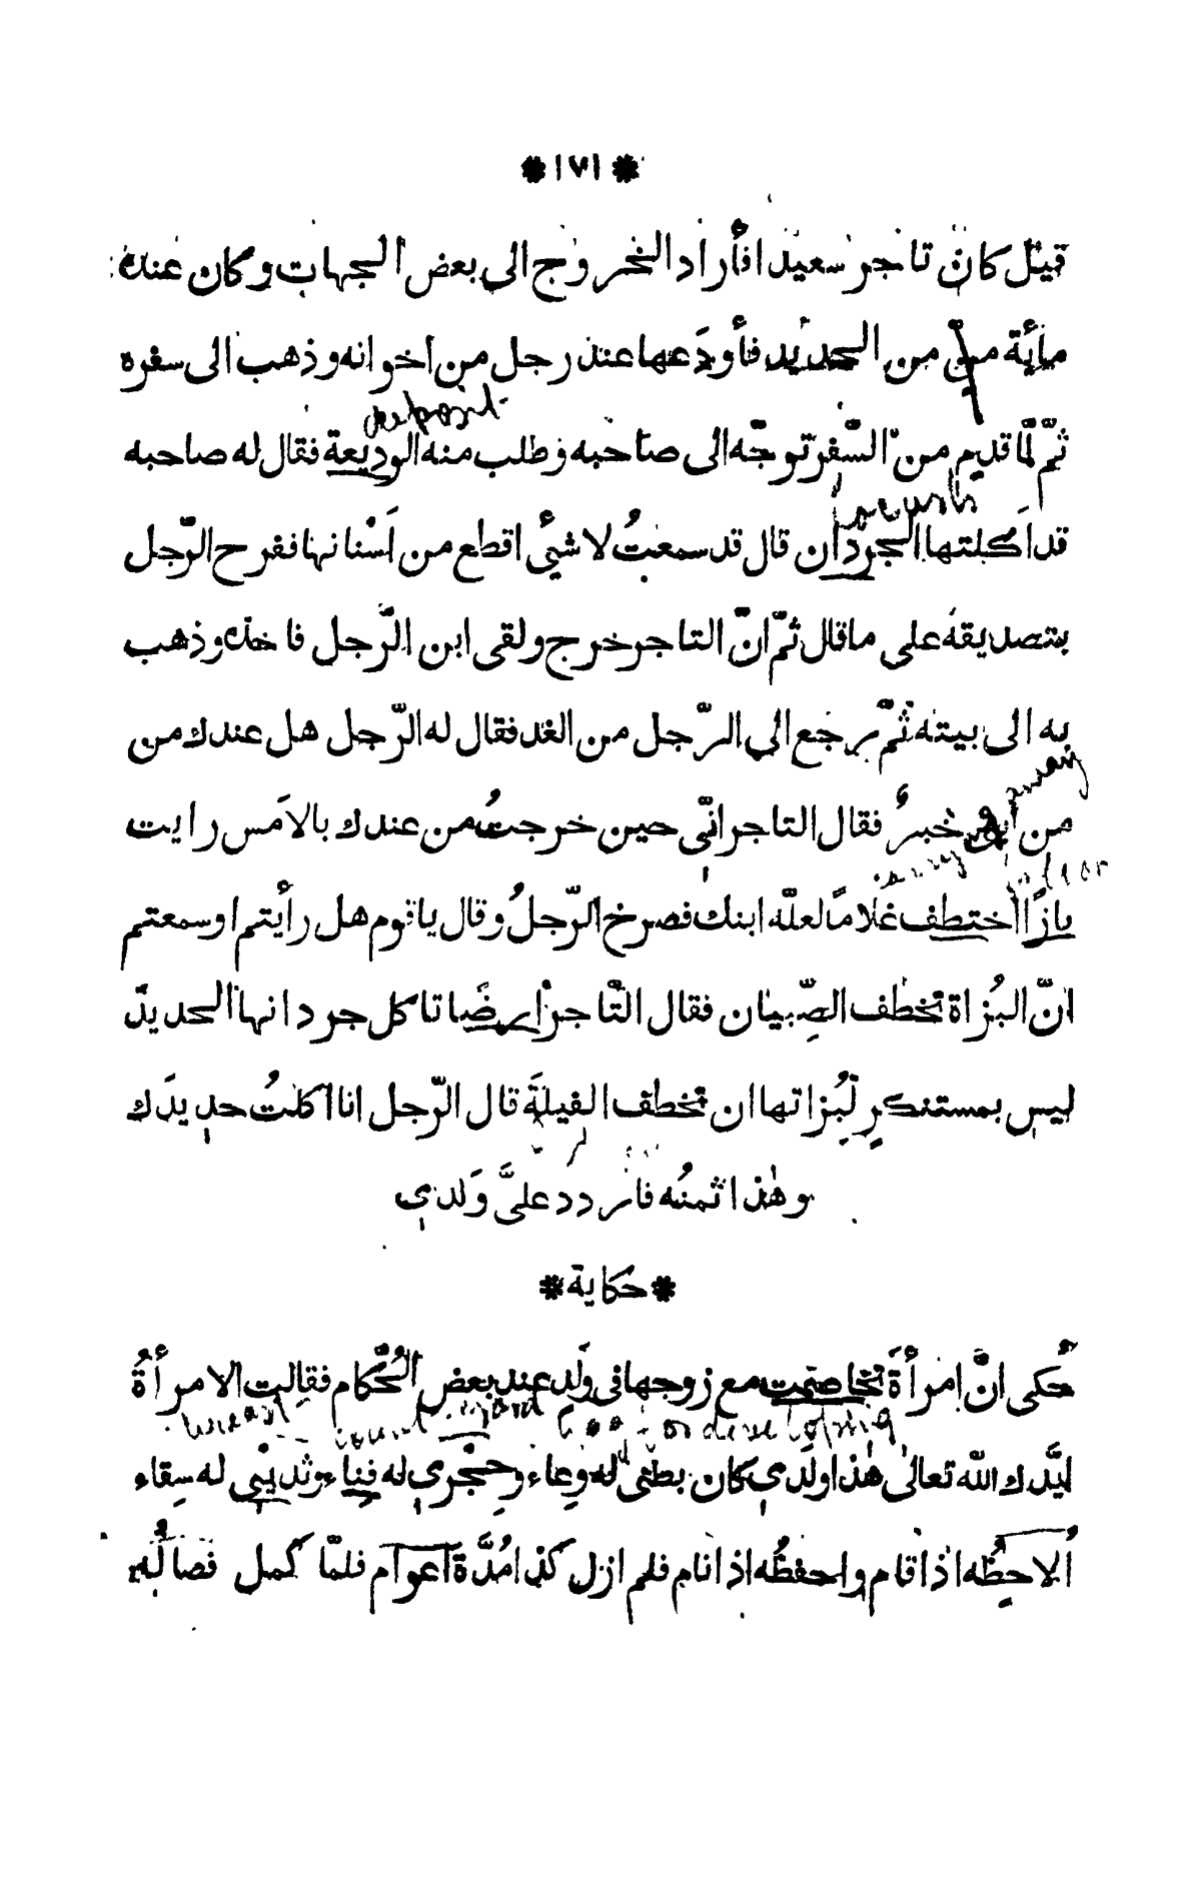 * ١٧١ *
قيل كان تاجر سعيد افأراد الخروج الى بعض الجهات وكان عنده
مأئة منّ من الحديد فأودَعها عند رجل من اخوانه وذهب الى سفره
deposit
ثمّ لمّا قدم من السّفر توجّه الى صاحبه وطلب منه الوديعة فقال له صاحبه
قد اَكلتها الجرذان قال قد سمعتُ لا شيئَ اقطع من اَسْنانها ففرح الرّجل
بتصديقه على ما قال ثمّ انّ التاجر خرج ولقى ابن الرّجل فاخذه وذهب
به الى بيته ثمّ رجع الي الرّجل من الغد فقال له الرّجل هل عندك من
من خبرٌ فقال التاجر انّي حين خرجتُ من عندك بالاَمس رايت
بازًا اختطف غلامًا لعلّه ابنك فصرخ الرّجلُ وقال يا قوم هل رأيتم او سمعتم
انّ البُزاة تخطف الصّبيان فقال التّاجر ارضًا تاكل جردانها الحديد
ليس بمستنكرٍ لبُزاتها ان تخطف الفيلةَ قال الرّجل انا اكلتُ حديدَك
وهٰذا ثمنُه فاردد علىَّ وَلدي
* حكاية *
حُكى انّ امرأةً تخاصمت مع زوجها فى وَلدٍ عند بعض الحُكّام فقالت الامرأةُ
breast
or developing
ايَّدك اللّٰه تعالىٰ هٰذا ولَدي كان بطنى له وِعاء وحِجْري له فِناء وثديَيْ له سِقاء
اُلاحِظُه اذا قام واحفظُه اذا نام فلم ازل كذا مُدّةَ اعوام فلمّا كمل فصالُه